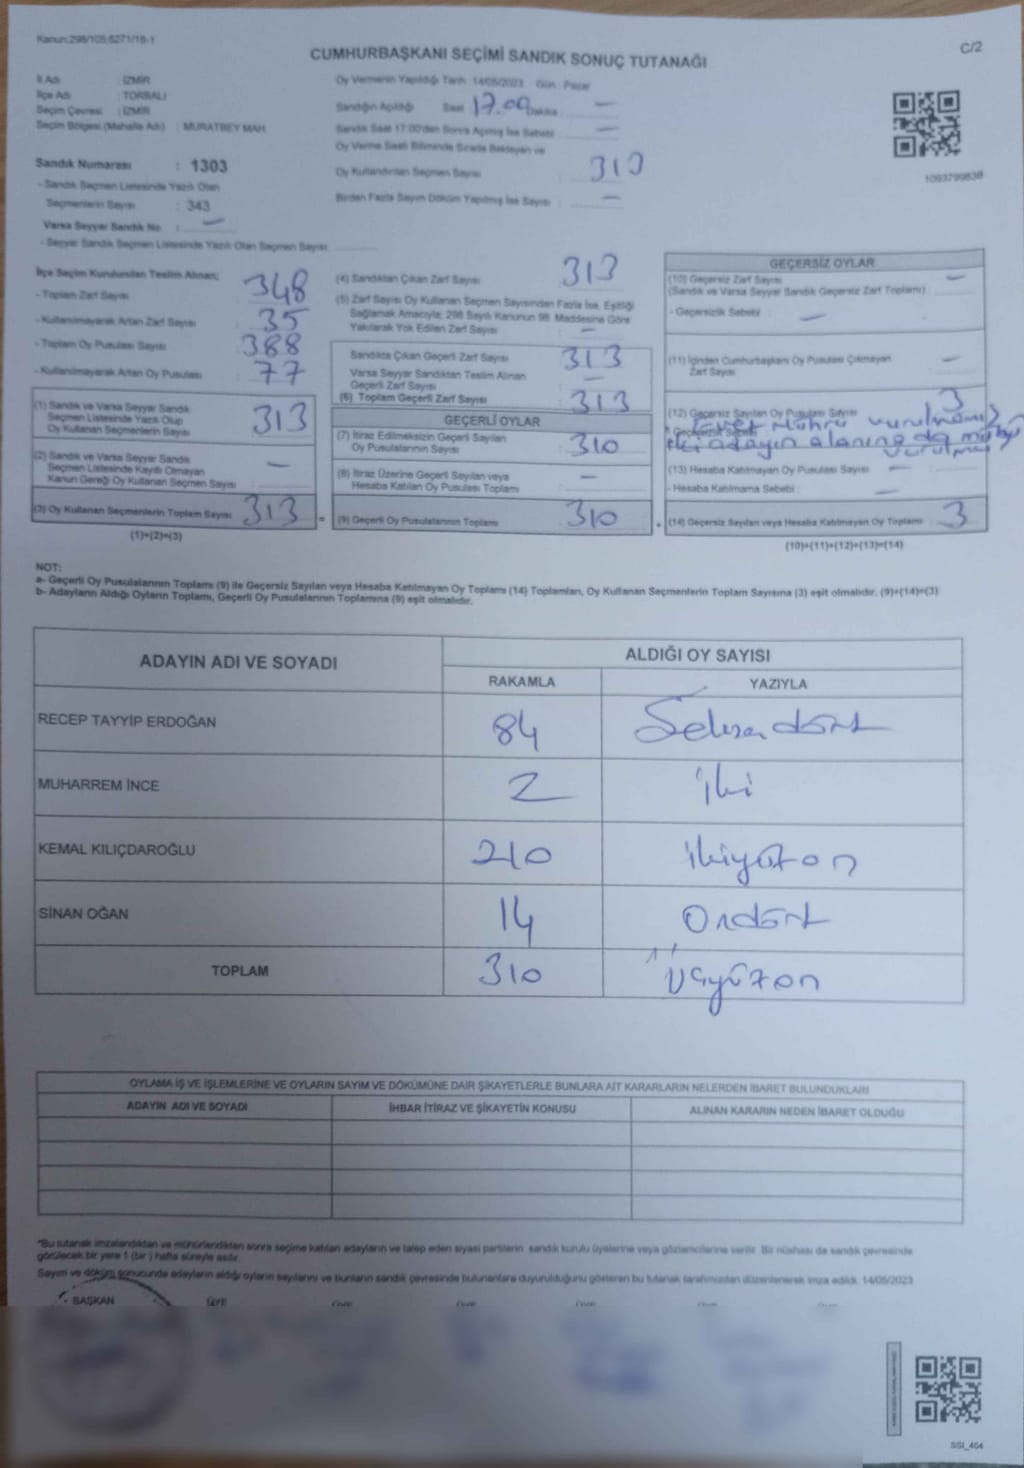 Kanun:298/105;6271/18-1
C/2
CUMHURBAŞKANI SEÇİMİ SANDIK SONUÇ TUTANAĞI
İl Adı : İZMİR
İlçe Adı : TORBALI
Seçim Çevresi : İZMİR
Seçim Bölgesi (Mahalle Adı) : MURATBEY MAH
Sandık Numarası : 1303
- Sandık Seçmen Listesinde Yazılı Olan
Seçmenlerin Sayısı : 343
Varsa Seyyar Sandık No : —
- Seyyar Sandık Seçmen Listesinde Yazılı Olan Seçmen Sayısı:
Oy Vermenin Yapıldığı Tarih :14/05/2023 Gün : Pazar
Sandığın Açıldığı Saat 17.00 Dakika : —
Sandık Saat 17:00'den Sonra Açılmış İse Sebebi : —
Oy Verme Saati Bitiminde Sırada Bekleyen ve
Oy Kullandırılan Seçmen Sayısı : 313
Birden Fazla Sayım Döküm Yapılmış İse Sayısı : —
1093799838
İlçe Seçim Kurulundan Teslim Alınan;
- Toplam Zarf Sayısı : 348
- Kullanılmayarak Artan Zarf Sayısı : 35
- Toplam Oy Pusulası Sayısı : 388
- Kullanılmayarak Artan Oy Pusulası : 77
(1) Sandık ve Varsa Seyyar Sandık
Seçmen Listesinde Yazılı Olup
Oy Kullanan Seçmenlerin Sayısı : 313
(2) Sandık ve Varsa Seyyar Sandık
Seçmen Listesinde Kayıtlı Olmayan
Kanun Gereği Oy Kullanan Seçmen Sayısı : —
(3) Oy Kullanan Seçmenlerin Toplam Sayısı : 313 =
(1)+(2)=(3)
(4) Sandıktan Çıkan Zarf Sayısı : 313
(5) Zarf Sayısı Oy Kullanan Seçmen Sayısından Fazla İse, Eşitliği
Sağlamak Amacıyla; 298 Sayılı Kanunun 98. Maddesine Göre
Yakılarak Yok Edilen Zarf Sayısı : —
Sandıkta Çıkan Geçerli Zarf Sayısı : 313
Varsa Seyyar Sandıktan Teslim Alınan
Geçerli Zarf Sayısı : —
(6) Toplam Geçerli Zarf Sayısı : 313
GEÇERLİ OYLAR
(7) İtiraz Edilmeksizin Geçerli Sayılan
Oy Pusulasının Sayısı : 310
(8) İtiraz Üzerine Geçerli Sayılan veya
Hesaba Katılan Oy Pusulası Toplamı : —
(9) Geçerli Oy Pusulalarının Toplamı : 310 +
GEÇERSİZ OYLAR
(10) Geçersiz Zarf Sayısı —
(Sandık ve Varsa Seyyar Sandık Geçersiz Zarf Toplamı) :
- Geçersizlik Sebebi : —
(11) İçinden Cumhurbaşkanı Oy Pusulası Çıkmayan —
Zarf Sayısı :
(12) Geçersiz Sayılan Oy Pusulası Sayısı 3
Evet Mührü vurulmamış
- Geçersizlik Sebebi
iki adayın alanına da mühür
vurulması
(13) Hesaba Katılmayan Oy Pusulası Sayısı : —
- Hesaba Katılmama Sebebi : —
(14) Geçersiz Sayılan veya Hesaba Katılmayan Oy Toplamı : 3
(10)+(11)+(12)+(13)=(14)
NOT:
a- Geçerli Oy Pusulalarının Toplamı (9) ile Geçersiz Sayılan veya Hesaba Katılmayan Oy Toplamı (14) Toplamları, Oy Kullanan Seçmenlerin Toplam Sayısına (3) eşit olmalıdır. (9)+(14)=(3)
b- Adayların Aldığı Oyların Toplamı, Geçerli Oy Pusulalarının Toplamına (9) eşit olmalıdır.
ADAYIN ADI VE SOYADI
ALDIĞI OY SAYISI
RAKAMLA YAZIYLA
RECEP TAYYİP ERDOĞAN 84 Seksendört
MUHARREM İNCE 2 iki
KEMAL KILIÇDAROĞLU 210 ikiyüzon
SİNAN OĞAN 14 Ondört
TOPLAM 310 üçyüzon
OYLAMA İŞ VE İŞLEMLERİNE VE OYLARIN SAYIM VE DÖKÜMÜNE DAİR ŞİKAYETLERLE BUNLARA AİT KARARLARIN NELERDEN İBARET BULUNDUKLARI
ADAYIN ADI VE SOYADI İHBAR İTİRAZ VE ŞİKAYETİN KONUSU ALINAN KARARIN NEDEN İBARET OLDUĞU
*Bu tutanak imzalandıktan ve mühürlendikten sonra seçime katılan adayların ve talep eden siyasi partilerin sandık kurulu üyelerine veya gözlemcilerine verilir. Bir nüshası da sandık çevresinde
görülecek bir yere 1 (bir) hafta süreyle asılır.
Sayım ve döküm sonucunda adayların aldığı oyların sayılarını ve bunların sandık çevresinde bulunanlara duyurulduğunu gösteren bu tutanak tarafımızdan düzenlenerek imza edildi. 14/05/2023
BAŞKAN ÜYE
SSI_404